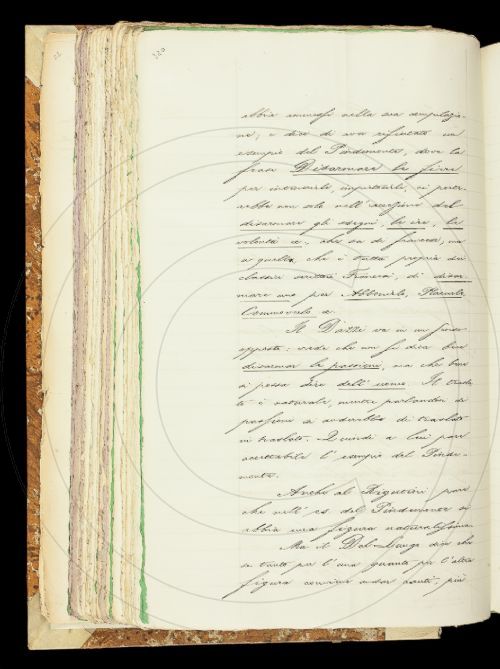 abbia ammessi nella sua compilazio-
ne; e dice di aver rifiutato un
esempio del Pindemonte, dove la
frase Disarmare le fiere
per intenerirle, impietosirle, ci
rebbe non solo nell' del
disarmare gli sdegni, le ire, la
volontà ec. che sa di francese, ma
a quella, che è tutta propria dei
classici scrittori Francesi, di disar-
mare uno per Abbonirlo, Placarlo,
Commoverlo ec.
Il Dazzi va in un
opposta: vede che un si dica bene
disarmar le passioni, ma che bene
si possa dire dell' uomo. Il trasla-
to è naturale, mentre parlandosi di
passioni si andrebbe di traslato
in traslato. Quindi a lui pare
accettabile l' esempio del Pinde-
monte.
Anche al Rigutini pare
che nell' es. del Pindemonte si
abbia una figura naturalissima.
Ma il Dal-Lungo dice che
se tanto per l'una quanto per l'altra
figura convien andar cauti, più